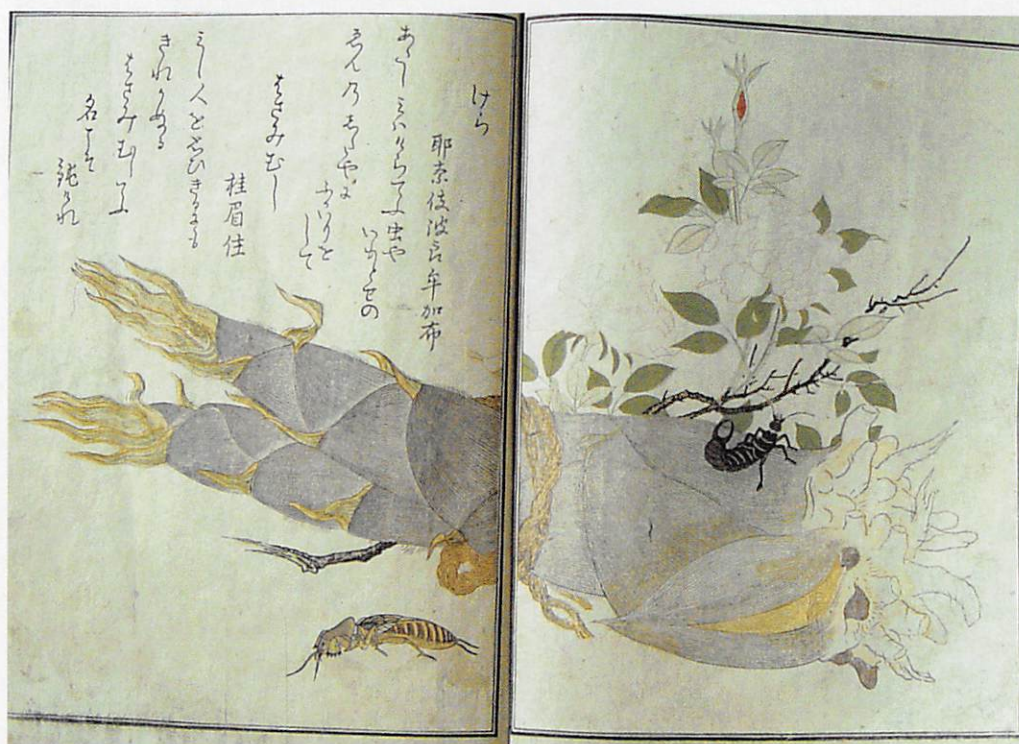 けら
耶奈伎波良牟加布
あたしミハけらてふ虫や
いもとせの
ゑん乃したやに
ふかいりを
して
はさみむし
桂眉住
ミし人をおもひきるにも
きれかぬる
はさみむしてふ
名こそ
鈍けれ